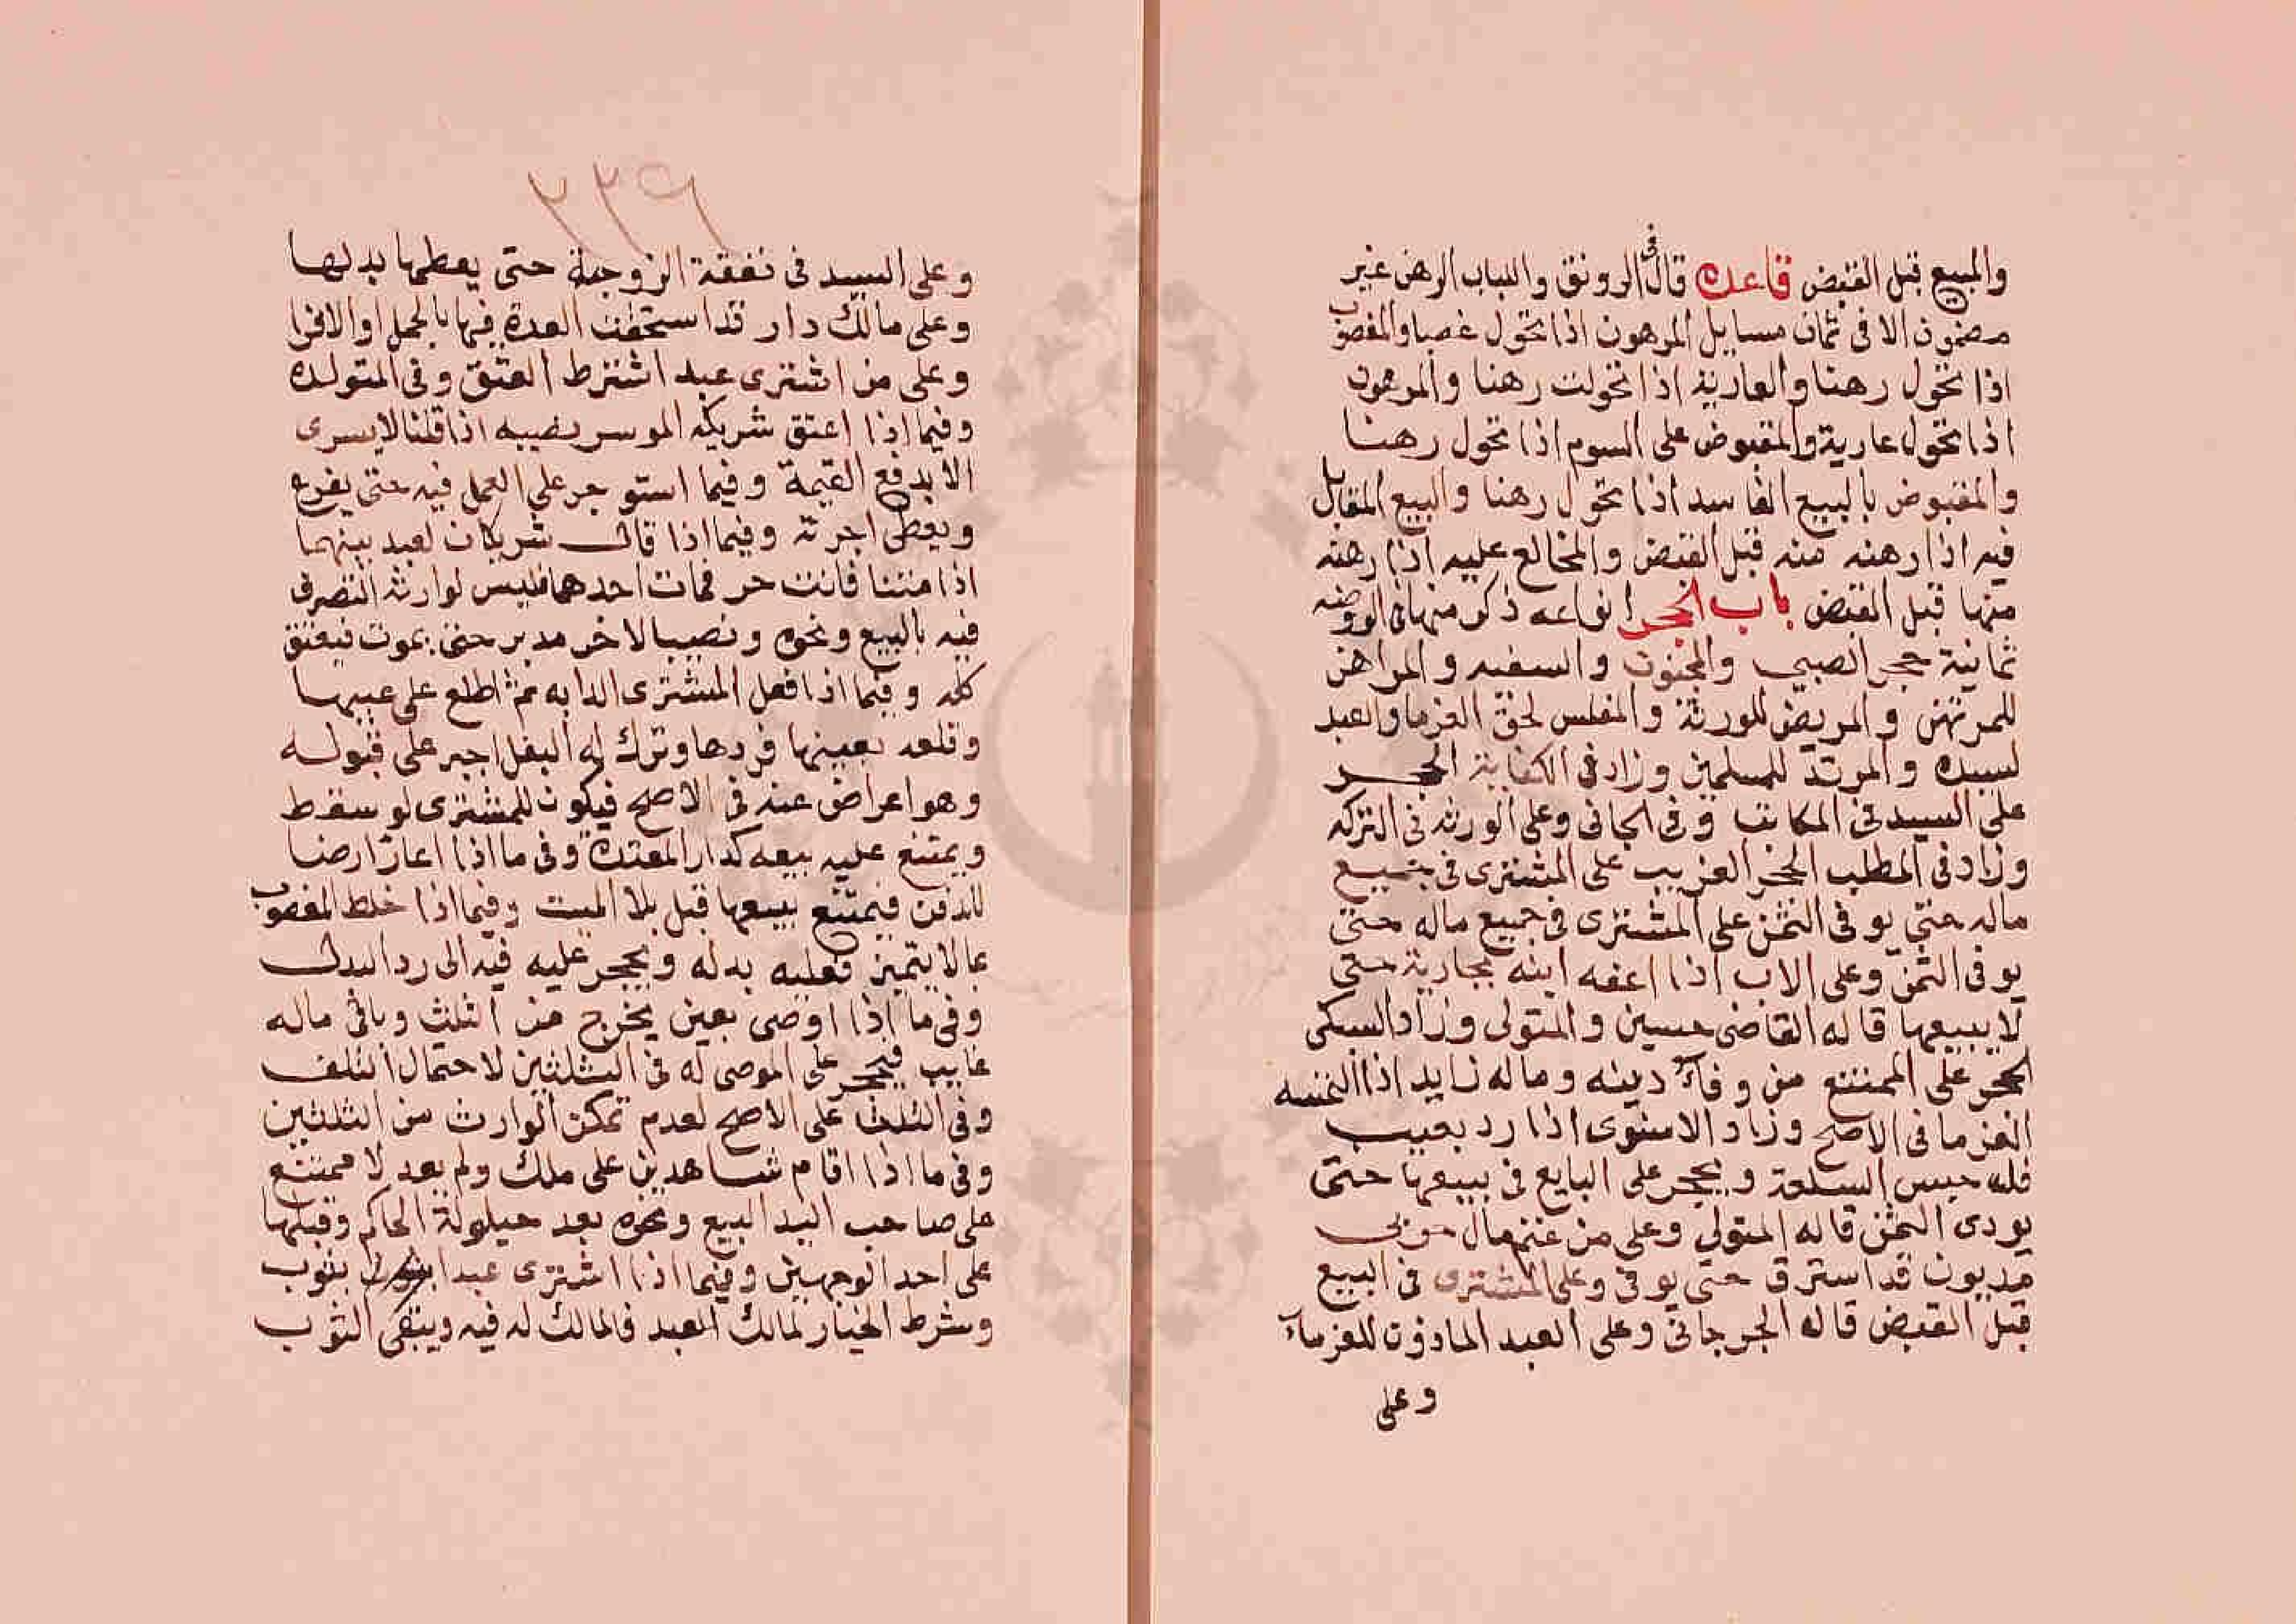 والمبيع قبل القبض قاعدة قال في الرونق واللباب الرهن غير
مضمون الا في ثمان مسايل المرهون اذا تحول غصبا والمغصوب
اذا تحول رهنا والعارية اذا تحولت رهنا والمرهون
اذا تحول عارية والمقبوض على السوم اذا تحول رهنا
والمقبوض بالبيع الفاسد اذا تحول رهنا والبيع المقايل
فيه اذا رهنه منه قبل القبض والمخالع عليه اذا رهنه
منها قبل القبض باب الحجر انواعه ذكر منها في الروضه
ثمانية حجر الصبي والمجنون والسفيه والراهن
للمرتهن والمريض للورثة والمفلس لحق الغرما والعبد
لسيده والمرتد للمسلمين وزاد في الكفاية الحجر
على السيد في المكاتب وفي الجاني وعلى الورثه في التركه
وزاد في المطلب الحجر الغريب على المشترى في جميع
ماله حتى يوفى الثمن على المشترى في جميع ماله حتى
يوفى الثمن وعلى الاب اذا اعفه ابنه بجارية حتى
لا يبيعها قاله القاضي حسين والمتولي وزاد السبكي
الحجر على الممتنع من وفاء دينه وماله زايد اذا التمسه
الغرما في الاصح وزاد الاسنوى اذا رد بعيب
فله حبس السلعة ويحجر على البايع في بيعها حتى
يودى الثمن قاله المتولي وعلى من غنم مال حربي
مديون قد استرق حتى يوفى وعلى المشترى في البيع
قبل القبض قاله الجرجاني وعلى العبد الماذون للغرماء
وعلى
٢٢٩
وعلى السيد في نفقة الزوجية حتى يعطيها بدلها
وعلى مالك دار قد استحقت العدة فيها بالحمل او الاقرا
وعلى من اشترى عبد اشترط العتق وفي المتولده
وفيما اذا اعتق شريكه الموسر نصيبه اذا قلنا لا يسرى
الا بدفع القيمة وفيما استوجر على العمل فيه حتى يفرغ
ويعطى اجرته وفيما اذا قال شريكان لعبد بينهما
اذا متنا فانت حر فمات احدهما فليس لوارثه التصرف
فيه بالبيع ونحوه ونصيب الاخر مدبر حتى يموت فيعتق
كله وفيما اذا فعل المشترى الدابه ثم اطلع على عيبها
وقلعه يعيبها فردها وترك له النعل اجبر على قبوله
وهو اعراض عنه في الاصح فيكون للمشترى لو سقط
ويمتنع عليه بيعه كدار المعتدة وفي ما اذا اعار ارضا
للدفن فيمتنع بيعها قبل بلا الميت وفيما اذا خلط المغصوب
بما لا يتميز فعليه بدله ويحجر عليه فيه الى رد البدل
وفي ما اذا اوصى بعين يخرج من الثلث وباقي ماله
غايب فيحجر على الموصى له في الثلثين لاحتمال التلف
وفي الثلث على الاصح لعدم تمكن الوارث من الثلثين
وفي ما اذا اقام شاهدين على ملك ولم يعدلا فيمتنع
على صاحب اليد البيع ونحوه بعد حيلولة الحاكم وقبلها
على احد الوجهين وفيما اذا اشترى عبدا بثوب
وشرط الخيار لمالك العبد فالمالك له فيه ويبقى الثوب